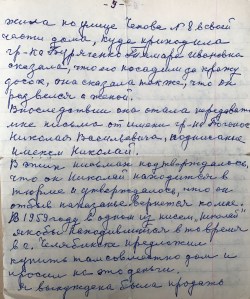 - 3 -
жила по улице Чехова № 8 в своей
части дома, куда приходила
гр-ка Бурятенко Тамара Ивановна
сказала, что его посадили за кражу
досок, она сказала также, что он
развелся с женой.
Впоследствии она стала передавать
мне письма от имени гр-на
Николая Васильевича, подписание
именем Николай.
В этих письмах подтверждалось,
что он Николай находится в
тюрьме и утверждалось, что он
отбыв наказание вернется ко мне.
В 1959 году в одном из писем, Николай"
якобы находившийся в то время
в г. Челябинске предложил
купить там совместно дом и
просил на это деньги.
Я вынуждена была продать